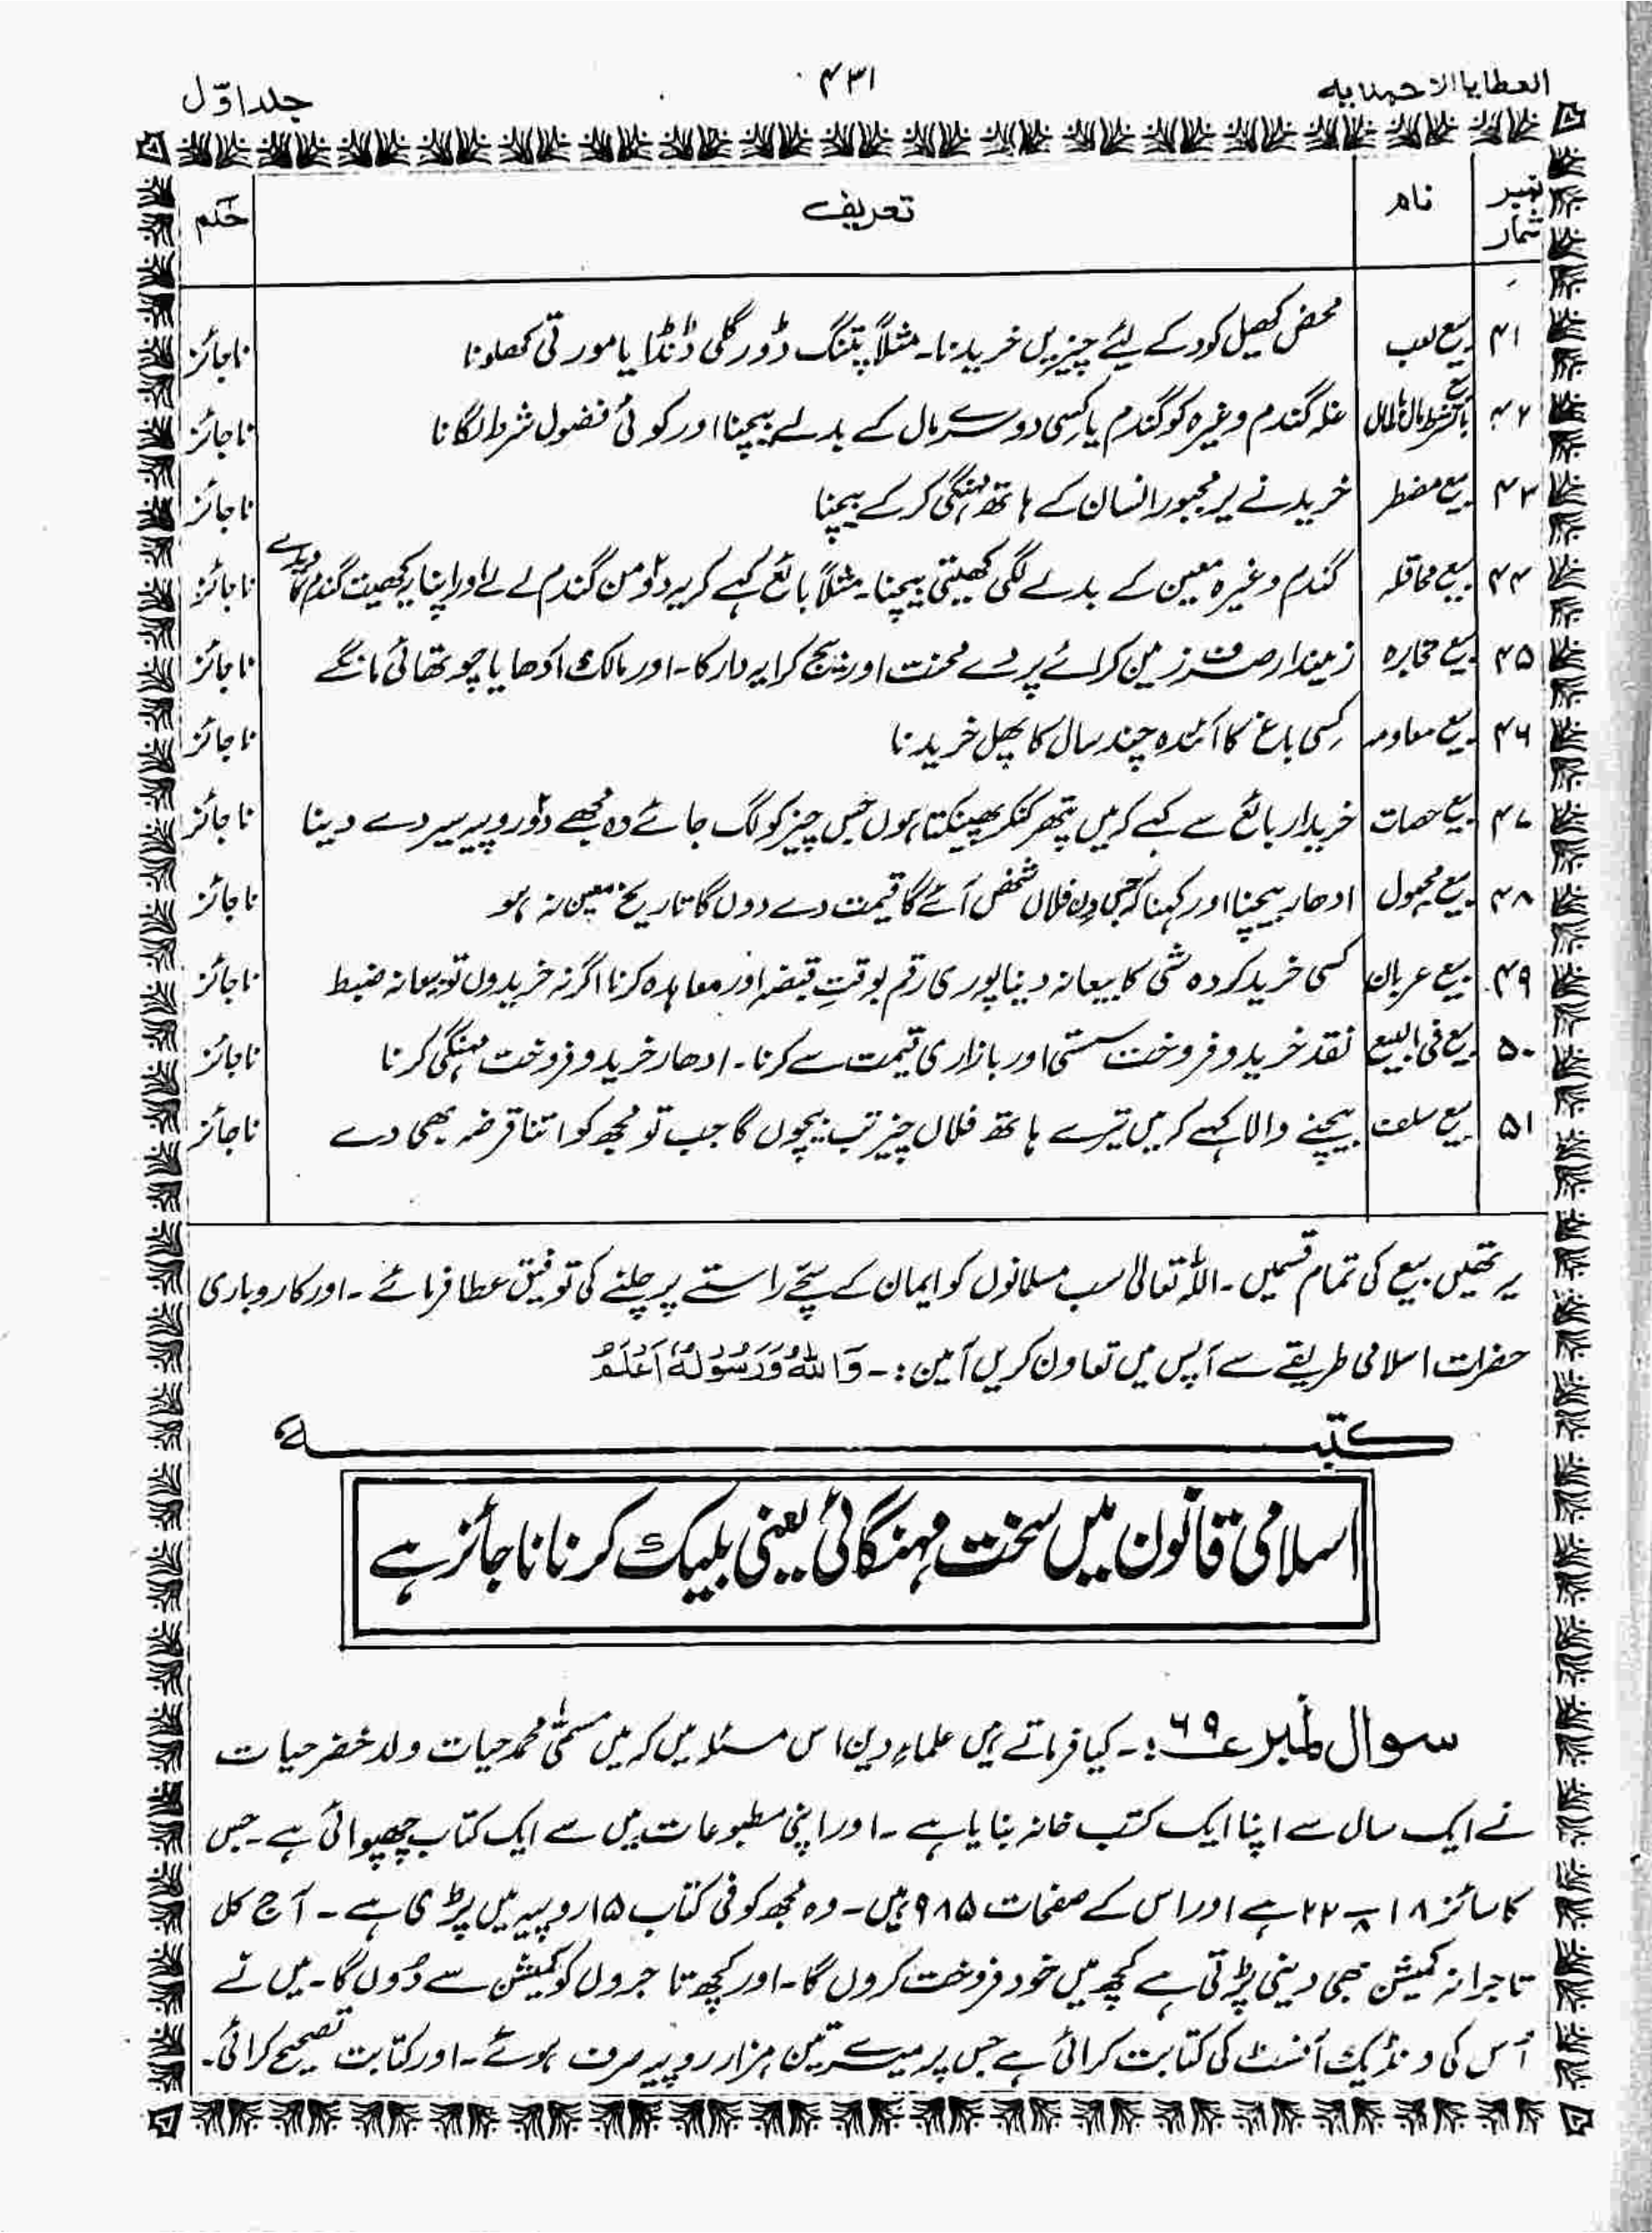 العطایا الاحمدیہ
۴۳۱
جلد اوّل
نمبر شمار | نام | تعریف | حکم
۴۱ | بیع لعب | محض کھیل کود کے لیئے چیزیں خریدنا۔ مثلاً پتنگ ڈور گلی ڈنڈا یا مورتی کھلونا | ناجائز
۴۲ | غلہ گندم وغیرہ کو گندم یا کسی دوسرے مال کے بدلے بیچنا اور کوئی فضول شرط لگانا | ناجائز
۴۳ | بیع مضطر | خریدنے پر مجبور انسان کے ہاتھ مہنگی کر کے بیچنا | ناجائز
۴۴ | بیع محاقلہ | گندم وغیرہ معین کے بدلے لگی کھیتی بیچنا۔ مثلاً بائع کہے کہ یہ دلو من گندم لے لے اور اپنا یہ کھیت گندم کا دیدے | ناجائز
۴۵ | بیع مخابرہ | زمیندار صرف زمین کرائے پر دے محنت اور بیج کرایہ دار کا۔ اور مالک آدھا یا چوتھائی مانگے | ناجائز
۴۶ | بیع معاومہ | کسی باغ کا آئندہ چند سال کا پھل خریدنا | ناجائز
۴۷ | بیع حصات | خریدار بائع سے کہے کہ میں پتھر کنکر پھینکتا ہوں جس چیز کو لگ جائے وہ مجھے دلو روپیہ سیر دے دینا | ناجائز
۴۸ | بیع مجہول | ادھار بیچنا اور کہنا کہ جس دن فلاں شخص آئے گا قیمت دے دوں گا تاریخ معین نہ ہو | ناجائز
۴۹ | بیع عربان | کسی خرید کردہ شی کا بیعانہ دینا پوری رقم بوقتِ قبضہ اور معاہدہ کرنا اگر نہ خریدوں تو بیعانہ ضبط | ناجائز
۵۰ | بیع فی البیع | نقد خرید و فروخت سستی اور بازاری قیمت سے کرنا۔ ادھار خرید و فروخت مہنگی کرنا | ناجائز
۵۱ | بیع سلف | بیچنے والا کہے کہ میں تیرے ہاتھ فلاں چیز تب بیچوں گا جب تو مجھ کو اتنا قرضہ بھی دے | ناجائز
یہ تھیں بیع کی تمام قسمیں۔ اللہ تعالیٰ سب مسلمانوں کو ایمان کے سچے راستے پر چلنے کی توفیق عطا فرمائے۔ اور کاروباری
حضرات اسلامی طریقے سے آپس میں تعاون کریں آمین:۔ وَاللّٰہُ وَرَسُوْلُہٗ اَعْلَمُ
کتبہ
اسلامی قانون میں سخت مہنگائی یعنی بلیک کرنا ناجائز ہے
سوال نمبر ۶۹:۔ کیا فرماتے ہیں علماءِ دین اس مسئلہ میں کہ میں مسمّٰی محمد حیات ولد خضر حیات
نے ایک سال سے اپنا ایک کتب خانہ بنایا ہے۔ اور اپنی مطبوعات میں سے ایک کتاب چھپوائی ہے۔ جس
کا سائز ۱۸ × ۲۲/۸ ہے اور اس کے صفحات ۹۸۵ ہیں۔ وہ مجھ کو فی کتاب ۱۵ روپیہ میں پڑی ہے۔ آج کل
تاجرانہ کمیشن بھی دینی پڑتی ہے کچھ میں خود فروخت کروں گا۔ اور کچھ تاجروں کو کمیشن سے دُوں گا۔ میں نے
اُس کی ونڈیک آفسٹ کی کتابت کرائی ہے جس پر میرے تین ہزار روپیہ صرف ہوئے۔ اور کتابت تصحیح کرائی۔